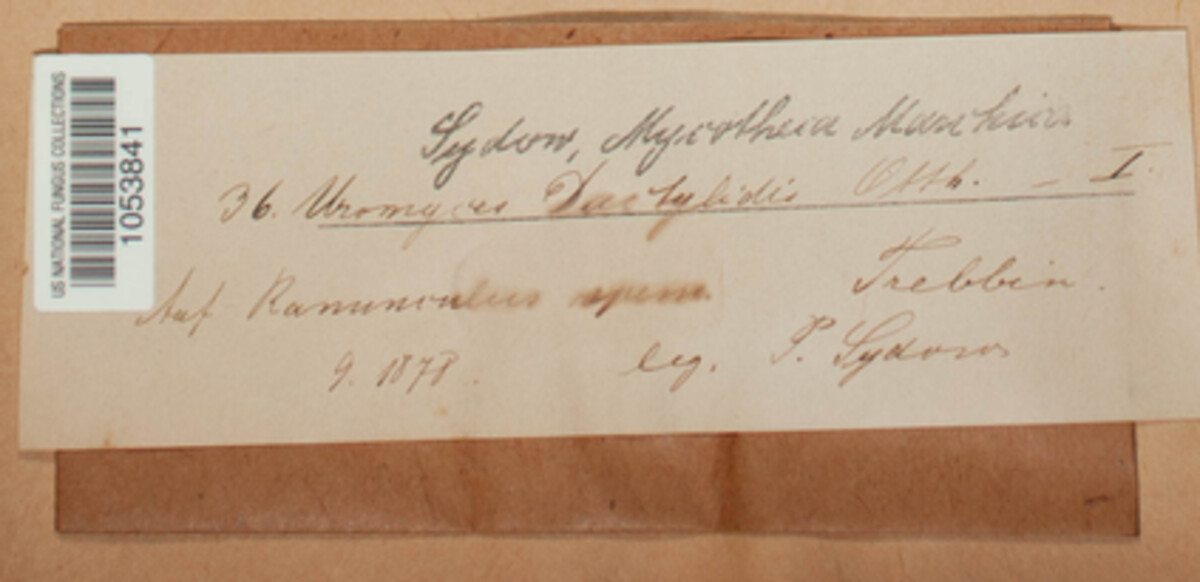 US NATIONAL FUNGUS COLLECTIONS
1053841
Sydow, Mycotheca Marchica
36. Uromyces Dactylidis Otth. – I.
Auf Ranunculus
Trebbin.
9. 1878.
leg. P. Sydow